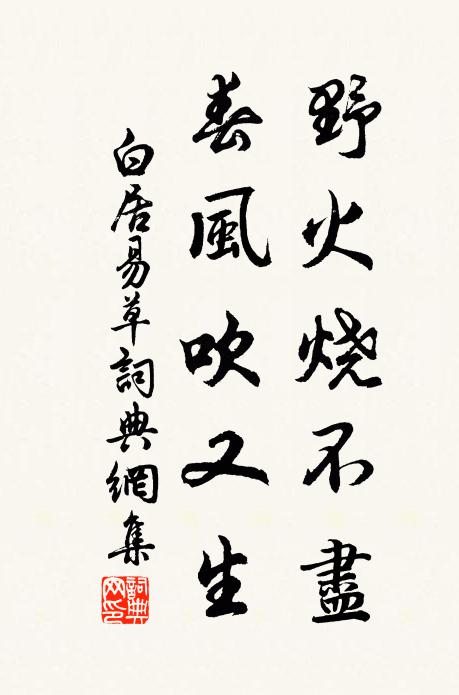 野火烧不盡
春風吹又生
白居易草詞典網集
詞典網印